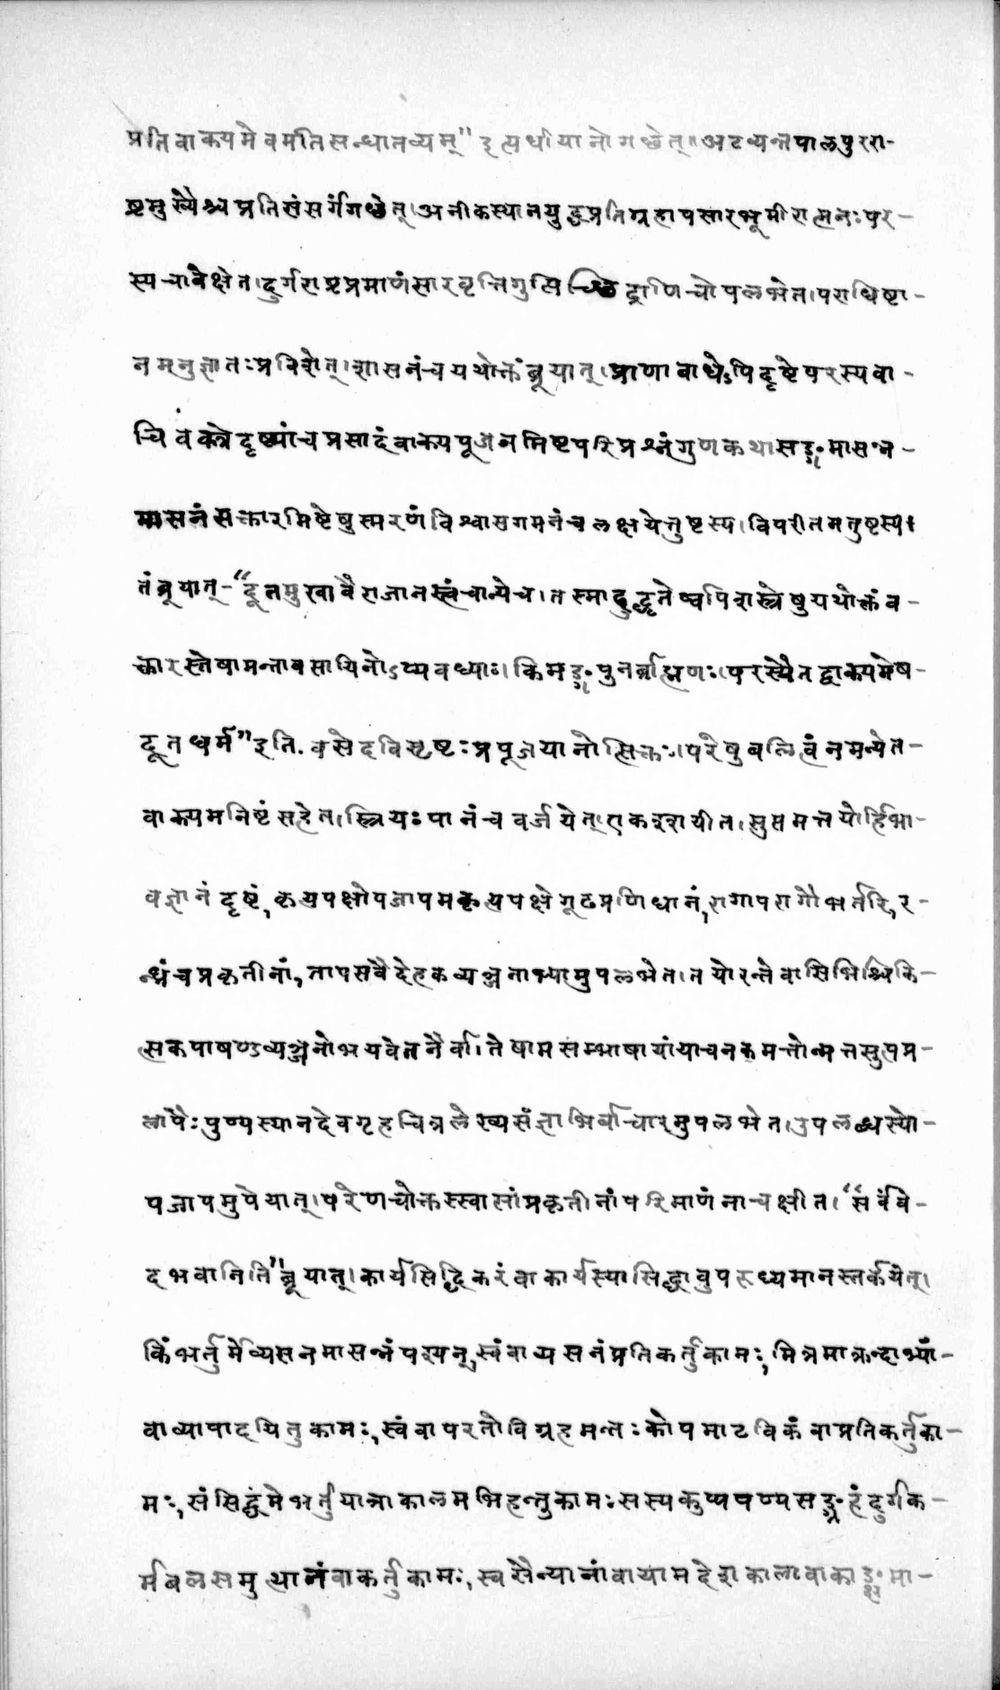 प्रतिवाक्यमेवमतिसन्धातव्यम्" इत्यधीयानो गच्छेत्॥अटव्यन्तपालपुररा-
ष्ट्रमुख्यैश्च प्रतिसंसर्गंगच्छेत्।अनीकस्थानयुद्धप्रतिग्रहापसारभूमीरात्मनःपर-
स्यचावेक्षेत।दुर्गराष्ट्रप्रमाणंसारवृत्तिगुप्तिच्छिद्राणिचोपलभेत।पराधिष्ठा-
नमनुज्ञातःप्रविशेत्।शासनंच यथोक्तंब्रूयात्।प्राणाबाधेऽपिदृष्टेपरस्यवा-
चि वक्त्रेदृष्ट्यांच प्रसादंवाक्यपूजनमिष्टपरिप्रश्नंगुणकथासङ्गमासन्न-
मासनंसत्कारमिष्टेषुस्मरणंविश्वासगमनंच लक्षयेत्तुष्टस्य।विपरीतमतुष्टस्य।
तंब्रूयात्-"दूतमुखावै राजानस्त्वंचान्येच।तस्मादुद्धृतेष्वपिशस्त्रेषुयथोक्तंव-
क्तारस्तेषामन्तावसायिनोऽप्यवध्याः।किमङ्ग पुनर्ब्राह्मणः।परस्यैतद्वाक्यमेष-
दूतधर्म"इति. वसेदविसृष्टःप्रपूजयानोत्सिक्तः।परेषुबलित्वंनमन्येत-
वाक्यमनिष्टंसहेत।स्त्रियःपानंच वर्जयेत्।एकश्शयीत।सुप्तमत्तयोर्हिभा-
वज्ञानंदृष्टं,कृत्यपक्षोपजापमकृत्यपक्षेगूढप्रणिधानं,रागापरागौभर्तरि,र-
न्ध्रंचप्रकृतीनां,तापसवैदेहकव्यञ्जनाभ्यामुपलभेत।तयोरन्तेवासिभिश्चिकि-
त्सकपाषण्डव्यञ्जनोभयवेतनैर्वा।तेषामसम्भाषायांयाचनकमत्तोन्मत्तसुप्तप्र-
लापैःपुण्यस्थानदेवगृहचित्रलेख्यसंज्ञाभिर्वाचारमुपलभेत।उपलब्धस्यो-
पजापमुपेयात्।परेणचोक्तस्स्वासांप्रकृतीनांपरिमाणंनाचक्षीत।"सर्वंवे-
दभवानिति"ब्रूयात्।कार्यसिद्धिकरंवाकार्यस्यासिद्धावुपरुध्यमानस्तर्कयेत्।
किंभर्तुर्मेव्यसनमासन्नंपश्यन्,स्वंवाव्यसनंप्रतिकर्तुकामः,मित्रमाक्रन्दाभ्यां-
वाव्यापादयितुकामः,स्वंवापरतोविग्रहमन्तःकोपमाटविकंवाप्रतिकर्तुका-
मः,संसिद्धंमेभर्तुर्यात्राकालमभिहन्तुकामःसस्यकुप्यपण्यसङ्ग्रहंदुर्गक-
र्मबलसमुत्थानंवाकर्तुकामः,स्वसैन्यानांवायामदेशकालावाकाङ्क्षमा-